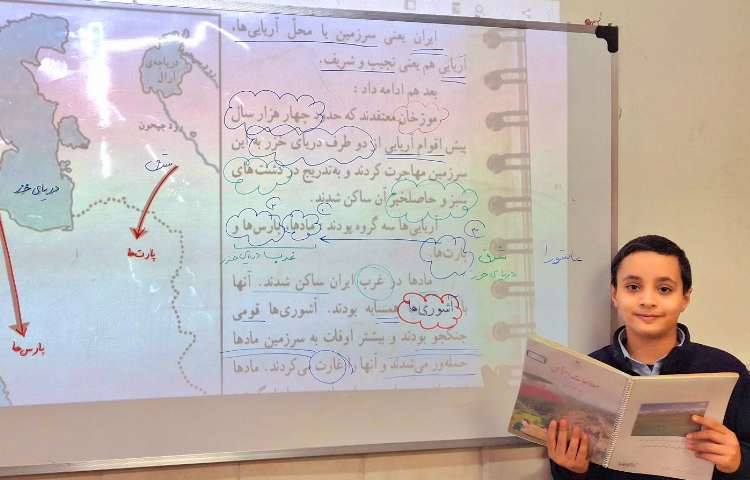 ایران یعنی سرزمین یا محلّ آریایی‌ها.
آریایی هم یعنی نجیب و شریف.
بعد هم ادامه داد :
مورّخان معتقدند که حدود چهار هزار سال
پیش اقوام آریایی از دو طرف دریای خزر به این
سرزمین مهاجرت کردند و به‌تدریج در دشت‌های
سبز و حاصلخیز آن ساکن شدند.
آریایی‌ها سه گروه بودند : مادها، پارس‌ها و
پارت‌ها.
غرب دریای خزر
شرق
دریای خزر
عاشورا
مادها در غرب ایران ساکن شدند. آنها
با آشوری‌ها همسایه بودند. آشوری‌ها قومی
جنگجو بودند و بیشتر اوقات به سرزمین مادها
حمله‌ور می‌شدند و آنها را غارت می‌کردند. مادها
دریاچه‌ی
آرال
رود جیحون
شرق
دریای خزر
پارت‌ها
پارس‌ها